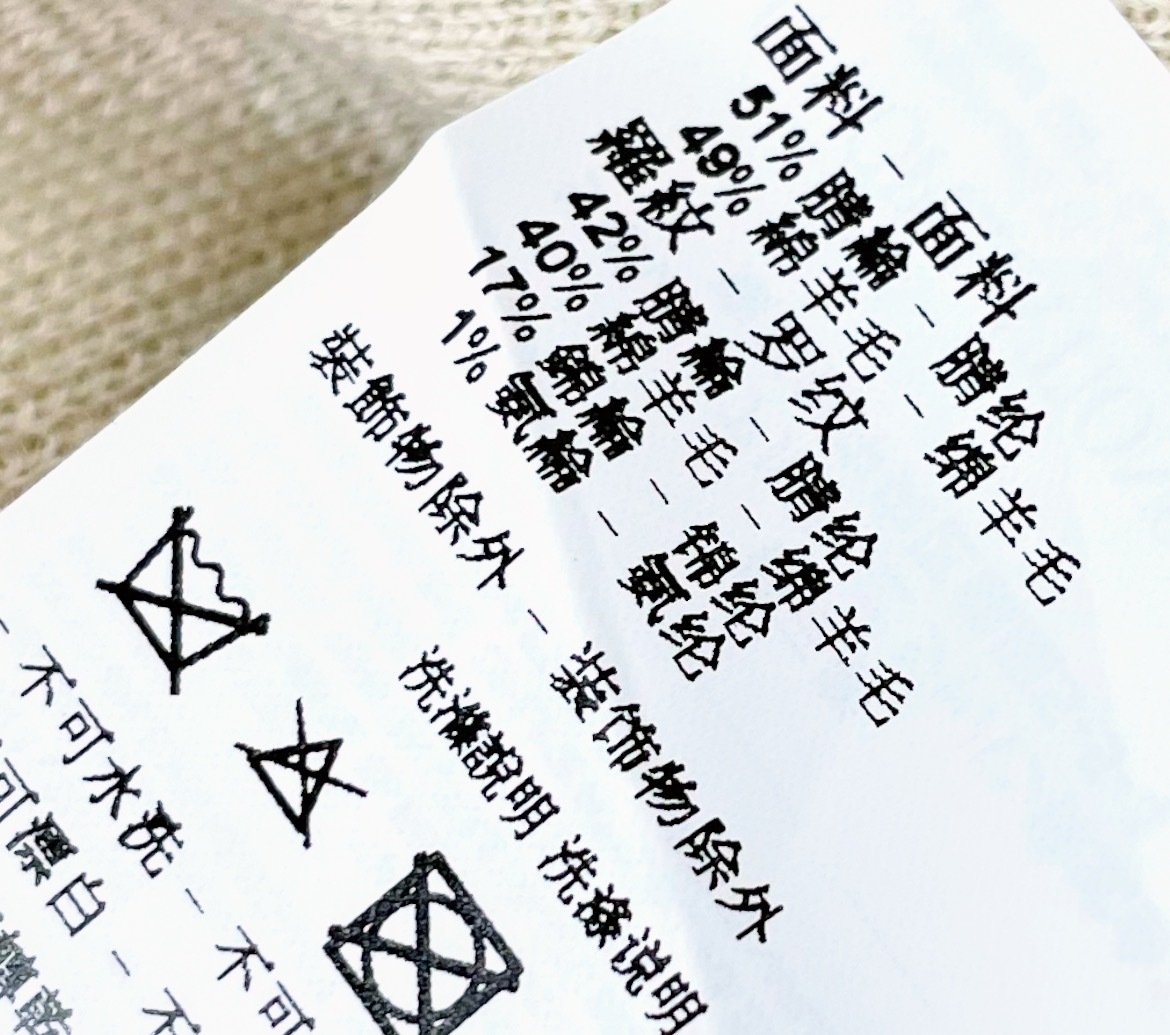 面料 - 面料
51% 腈綸 - 腈纶
49% 綿羊毛 - 绵羊毛
羅紋 - 罗纹
42% 腈綸 - 腈纶
40% 綿羊毛 - 绵羊毛
17% 錦綸 - 锦纶
1% 氨綸 - 氨纶
裝飾物除外 - 装饰物除外
洗滌說明 洗涤说明
- 不可水洗 - 不可
可漂白 - 不